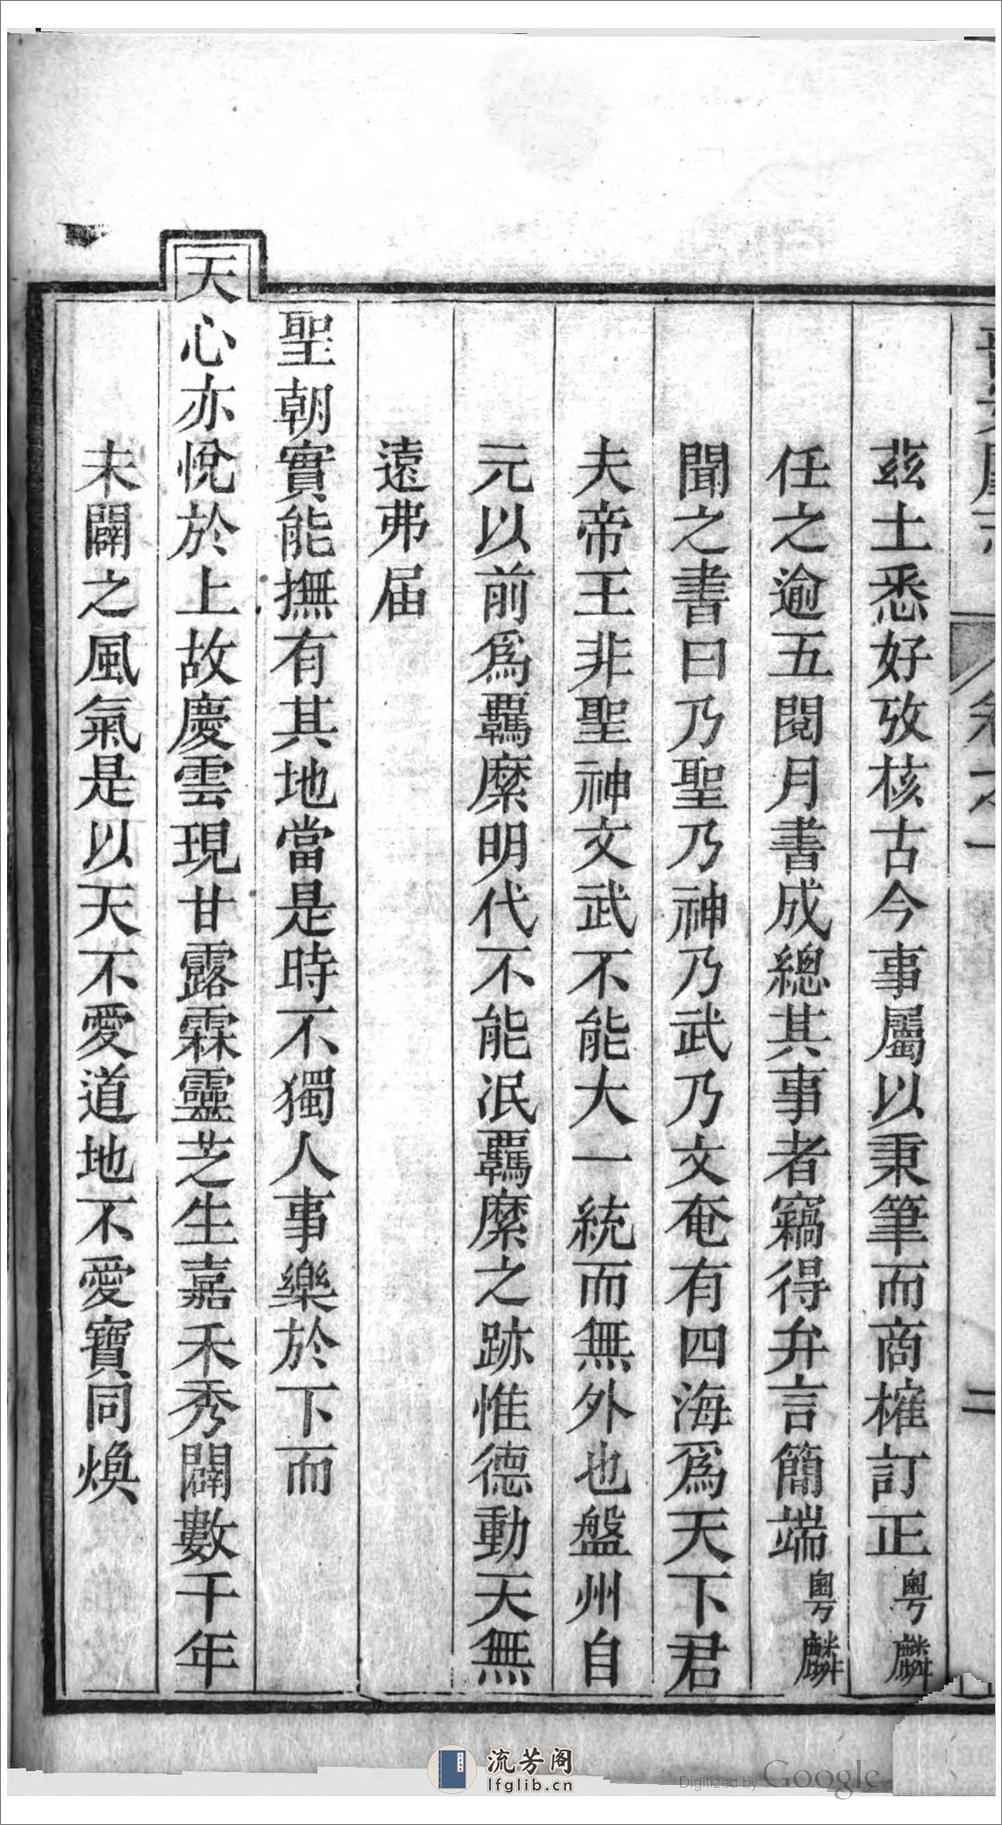 茲土悉好攷核古今事屬以秉筆而商榷訂正粵麟
任之逾五閱月書成總其事者竊得弁言簡端粵麟
聞之書曰乃聖乃神乃武乃文奄有四海爲天下君
夫帝王非聖神文武不能大一統而無外也盤州自
元以前爲羈縻明代不能泯羈縻之跡惟德動天無
遠弗届
聖朝實能撫有其地當是時不獨人事樂於下而
天心亦悅於上故慶雲現甘露霖靈芝生嘉禾秀闢數千年
未闢之風氣是以天不愛道地不愛寶同煥
流芳阁
lfglib.cn
Digitized by Google